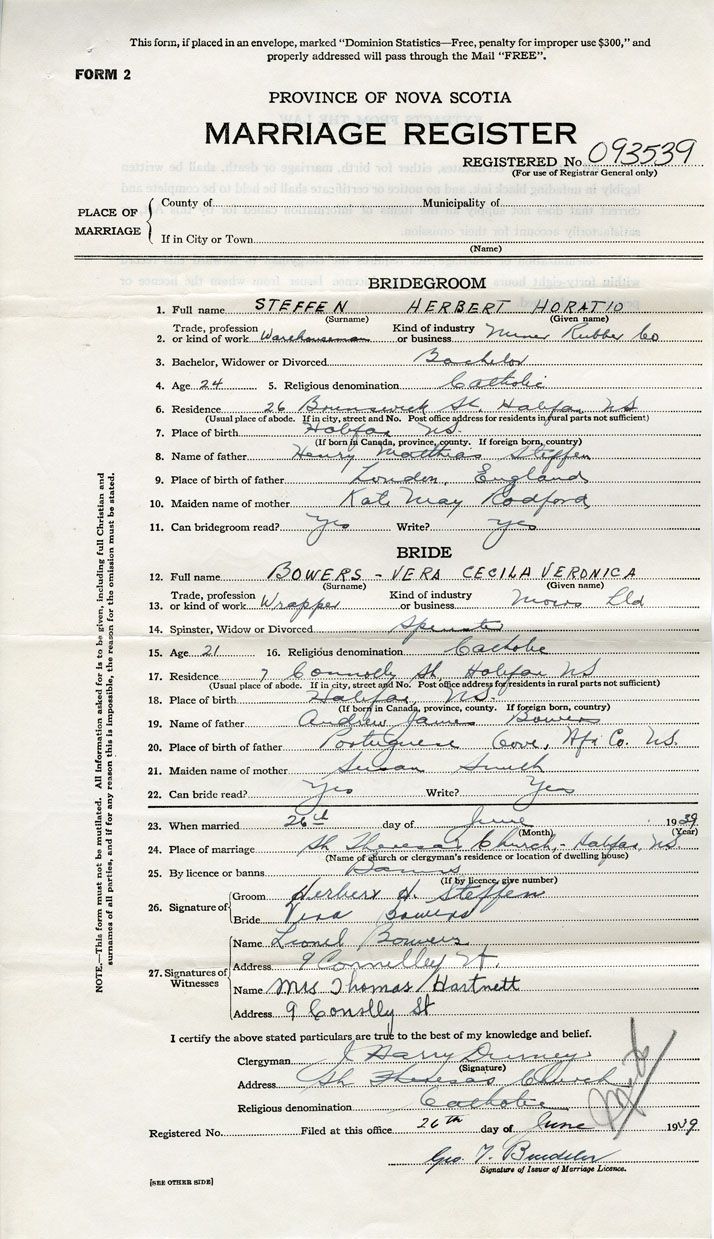 This form, if placed in an envelope, marked "Dominion Statistics—Free, penalty for improper use $300," and
properly addressed will pass through the Mail "FREE".
FORM 2
PROVINCE OF NOVA SCOTIA
MARRIAGE REGISTER
REGISTERED No. 093539
(For use of Registrar General only)
PLACE OF MARRIAGE
County of Municipality of
If in City or Town
(Name)
BRIDEGROOM
1. Full name STEFFEN HERBERT HORATIO
(Surname) (Given name)
2. Trade, profession or kind of work Warehouseman Kind of industry or business Miner Rubber Co
3. Bachelor, Widower or Divorced Bachelor
4. Age 24 5. Religious denomination Catholic
6. Residence 26 Brunswick St. Halifax NS
(Usual place of abode. If in city, street and No. Post office address for residents in rural parts not sufficient)
7. Place of birth Halifax NS.
(If born in Canada, province, county. If foreign born, country)
8. Name of father Henry Matthias Steffen
9. Place of birth of father London, England
10. Maiden name of mother Kate May Radford
11. Can bridegroom read? Yes Write? Yes
BRIDE
12. Full name BOWERS - VERA CECILA VERONICA
(Surname) (Given name)
13. Trade, profession or kind of work Wrapper Kind of industry or business Moirs Ltd
14. Spinster, Widow or Divorced Spinster
15. Age 21 16. Religious denomination Catholic
17. Residence 7 Connolly St. Halifax NS
(Usual place of abode. If in city, street and No. Post office address for residents in rural parts not sufficient)
18. Place of birth Halifax, NS.
(If born in Canada, province, county. If foreign born, country)
19. Name of father Andrew James Bowers
20. Place of birth of father Portuguese Cove, Hfx Co. NS.
21. Maiden name of mother Susan Smith
22. Can bride read? Yes Write? Yes
23. When married 26th day of June 1939
(Month) (Year)
24. Place of marriage St Theresas Church, - Halifax NS.
(Name of church or clergyman's residence or location of dwelling house)
25. By licence or banns Banns
(If by licence, give number)
26. Signature of
Groom Herbert H. Steffen
Bride Vera Bowers
27. Signatures of Witnesses
Name Lionel Bowers
Address 9 Connelley St.
Name Mrs Thomas Hartnett
Address 9 Conolly St
I certify the above stated particulars are true to the best of my knowledge and belief.
Clergyman J Harry Durney
(Signature)
Address St Theresas Church
Religious denomination Catholic
Registered No. Filed at this office 26th day of June 1939
Geo. T.
Signature of Issuer of Marriage Licence.
[SEE OTHER SIDE]
NOTE.—This form must not be mutilated. All information asked for is to be given, including full Christian and
surnames of all parties, and if for any reason this is impossible, the reason for the omission must be stated.